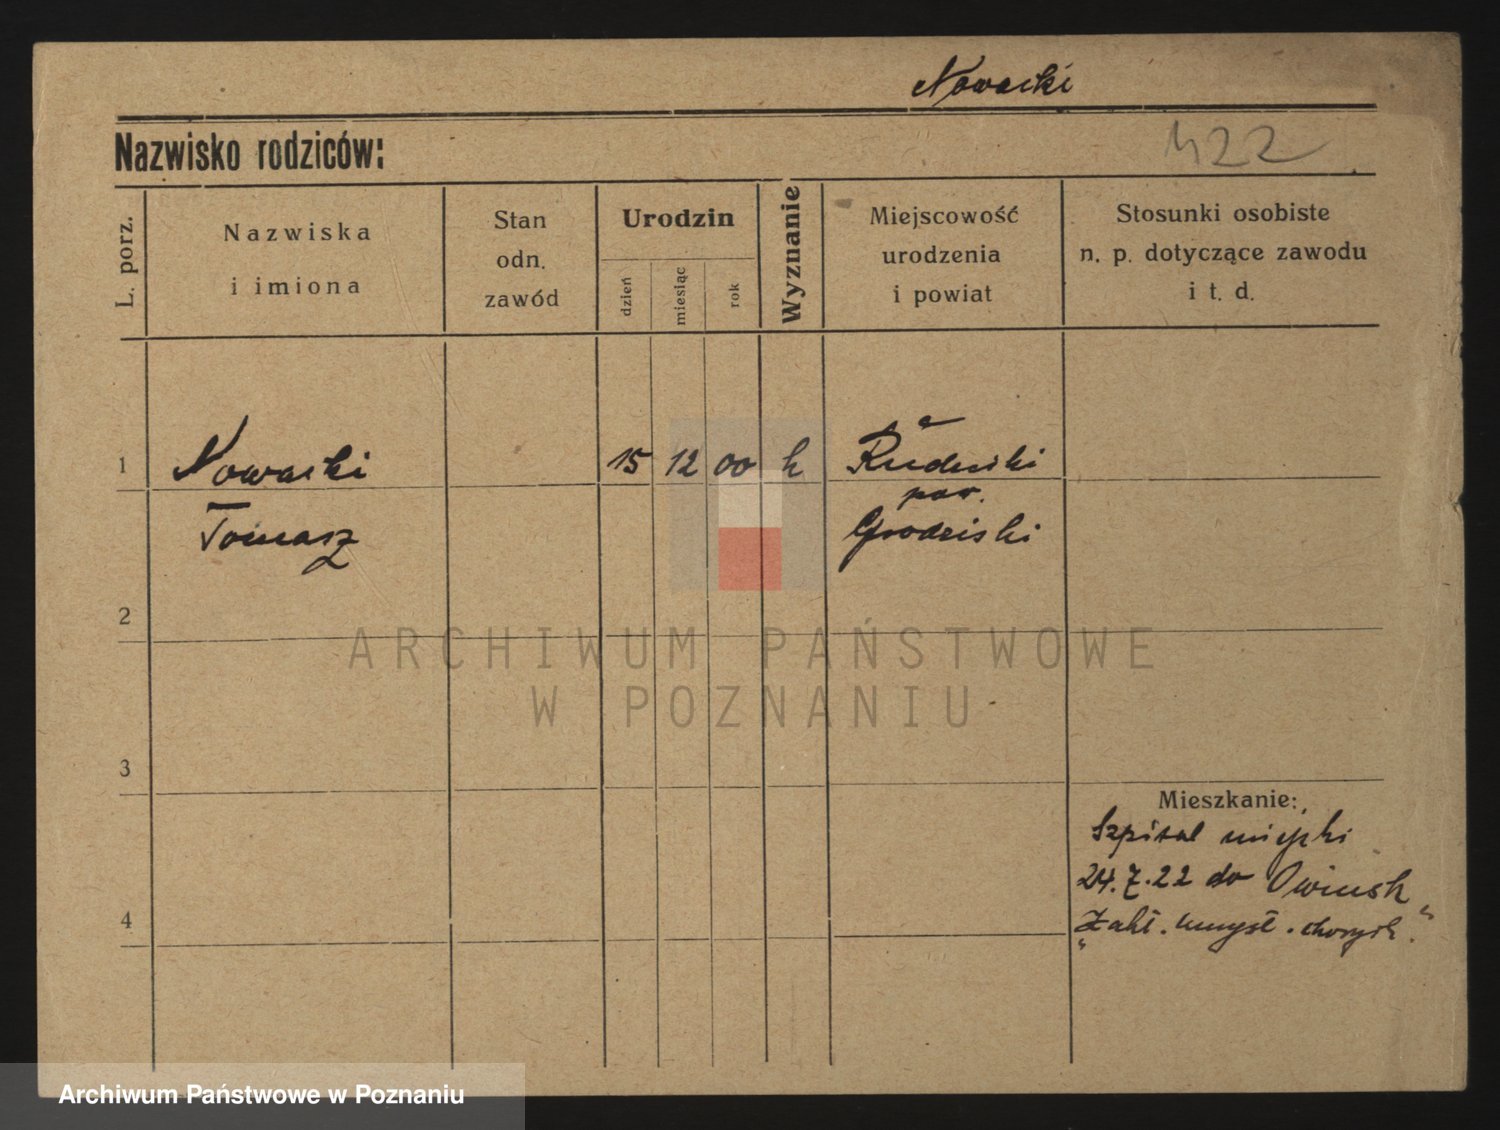 Nowacki
Nazwisko rodziców:
422
L. porz.
Nazwiska
i imiona
Stan
odn.
zawód
Urodzin
dzień
miesiąc
rok
Wyznanie
Miejscowość
urodzenia
i powiat
Stosunki osobiste
n. p. dotyczące zawodu
i t. d.
1
Nowacki
15 12 00 k
Rudniki
pow.
Tomasz
Grodziski
2
ARCHIWUM PAŃSTWOWE
W POZNANIU
3
Mieszkanie:
Szpital miejski
24.7.22 do Owinsk
4
"Zakł. umysł. chorych."
Archiwum Państwowe w Poznaniu